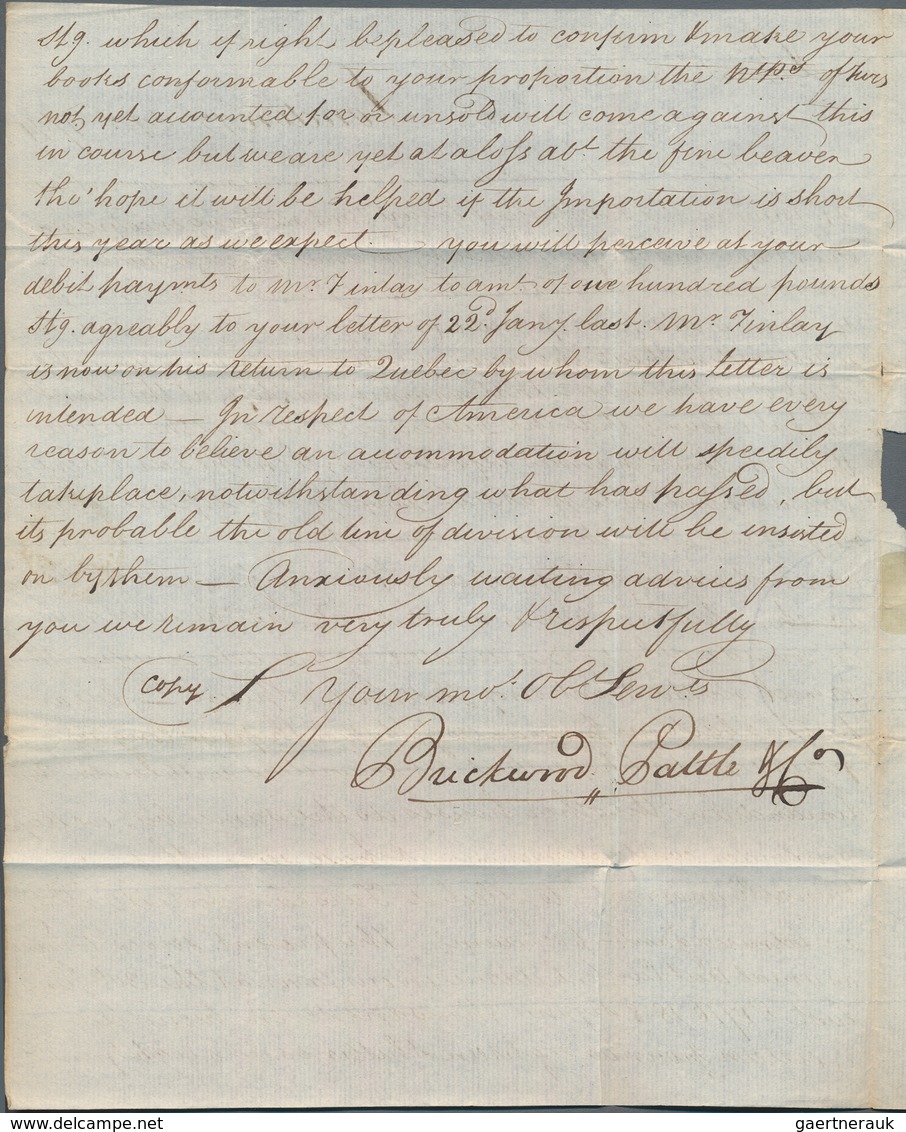 Stg. which if right be pleased to confirm & make your
books conformable to your proportion the of furs
not yet accounted for or unsold will come against this
in course but we are yet at a loss abt. the fine beaver
tho' hope it will be helped if the Importation is short
this year as we expect. you will perceive at your
debit paymts to Mr. Finlay to amt. of one hundred pounds
Stg. agreably to your letter of 22d. Jany. last. Mr. Finlay
is now on his return to Quebec by whom this letter is
intended — In respect of America we have every
reason to believe an accommodation will speedily
take place, notwithstanding what has passed, but
its probable the old line of division will be insisted
on by them — Anxiously waiting advices from
you we remain very truly & respectfully
Copy Your mo. Obt Servts
Brickwood Pattle & Co
delcampe.net gaertnerauk